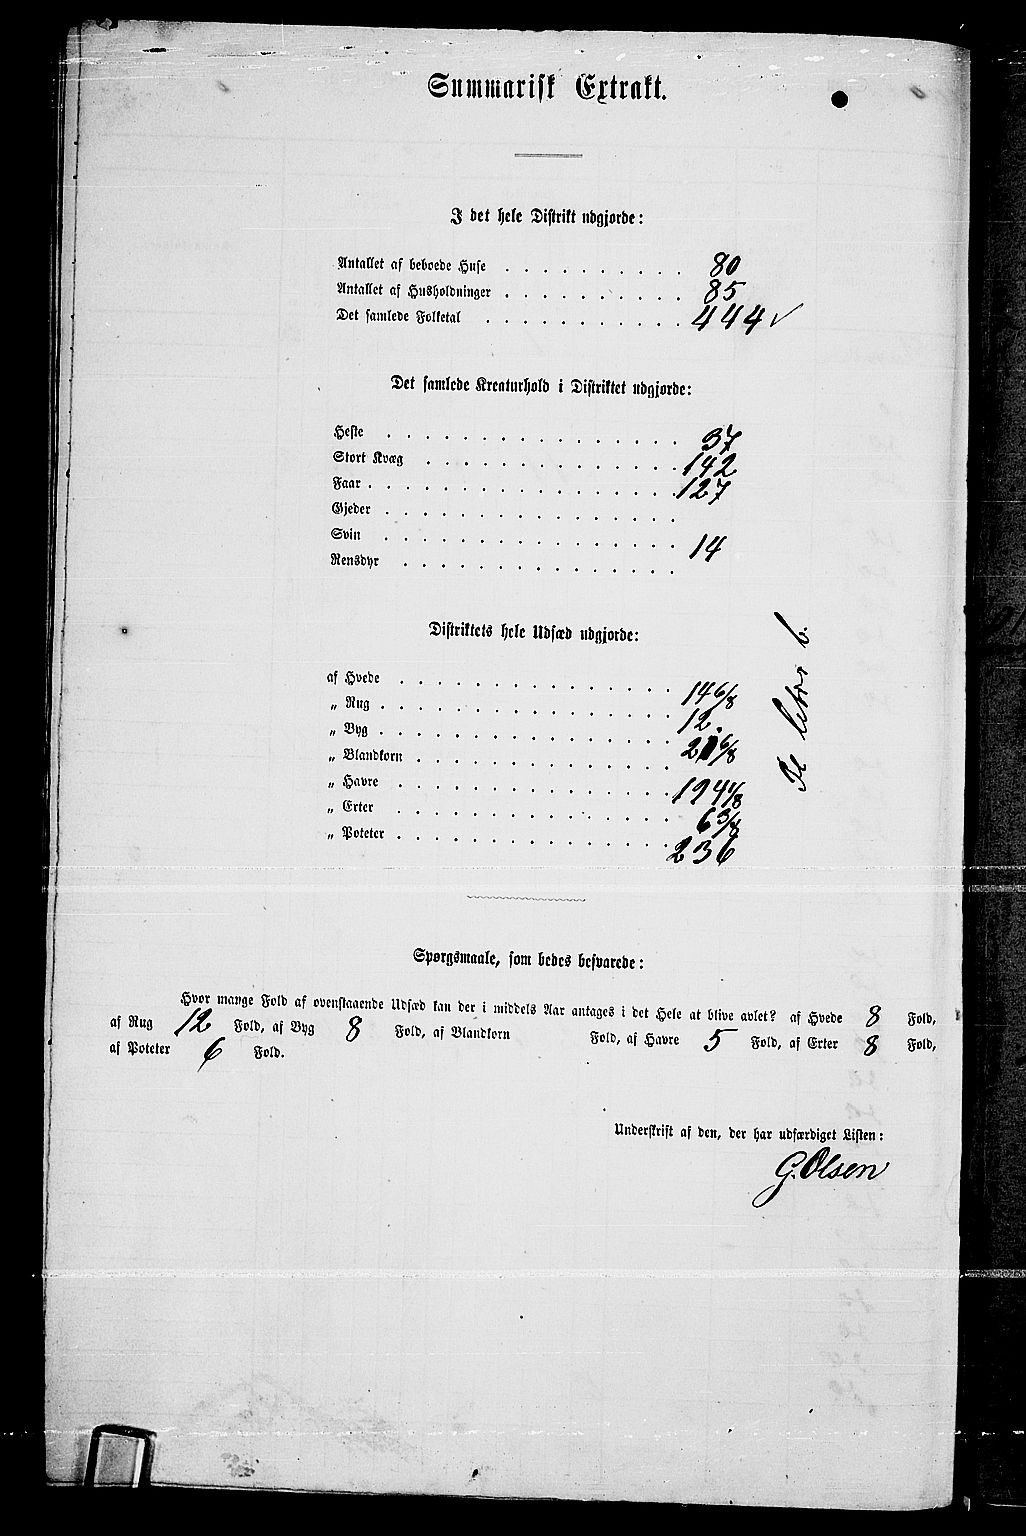 Summarisk Extrakt.
I det hele Distrikt udgjorde:
Antallet af beboede Huse . . . . . . . . . . 80
Antallet af Husholdninger . . . . . . . . . . 85
Det samlede Folketal . . . . . . . . . . . 444 ✓
Det samlede Kreaturhold i Distriktet udgjorde:
Heste . . . . . . . . . . . . . . . . 37
Stort Kvæg . . . . . . . . . . . . . . 142
Faar . . . . . . . . . . . . . . . . . 127
Gjeder . . . . . . . . . . . . . . . .
Svin . . . . . . . . . . . . . . . . 14
Rensdyr . . . . . . . . . . . . . . .
Distriktets hele Udsæd udgjorde:
af Hvede . . . . . . . . . . . . . . . 14 6/8
„ Rug . . . . . . . . . . . . . . . . 12.
„ Byg . . . . . . . . . . . . . . . . 21 6/8
„ Blandkorn . . . . . . . . . . . . . .
„ Havre . . . . . . . . . . . . . . . 194 4/8
„ Erter . . . . . . . . . . . . . . . 6 3/8
„ Poteter . . . . . . . . . . . . . . . 236
b.
Spørgsmaale, som bedes besvarede:
Hvor mange Fold af ovenstaaende Udsæd kan der i middels Aar antages i det Hele at blive avlet? af Hvede 8 Fold,
af Rug 12 Fold, af Byg 8 Fold, af Blandkorn Fold, af Havre 5 Fold, af Erter 8 Fold,
af Poteter 6 Fold.
Underskrift af den, der har udfærdiget Listen:
G. Olsen